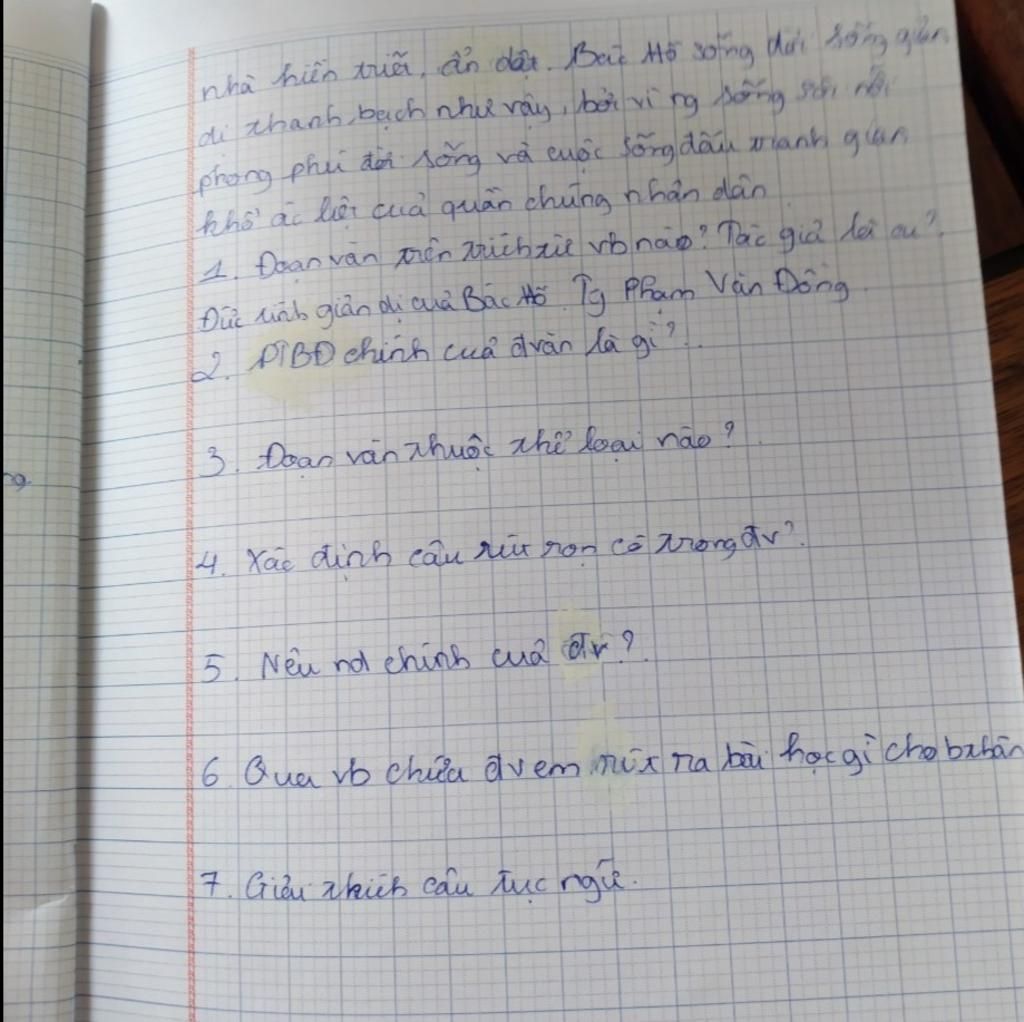 nhà hiền triết, ẩn dật. Bác Hồ sống đời sống giản
dị thanh bạch như vậy, bởi vì ng sống sôi nổi
phong phú đời sống và cuộc sống đấu tranh gian
khổ ác liệt của quần chúng nhân dân
1. Đoạn văn trên trích từ vb nào? Tác giả là ai?
Đức tính giản dị của Bác Hồ Tg Phạm Văn Đồng
2. PTBĐ chính của đvăn là gì?
3. Đoạn văn thuộc thể loại nào?
4. Xác định câu rút gọn có trong đv?
5. Nêu nd chính của đv?
6. Qua vb chứa đv em rút ra bài học gì cho bthân
7. Giải thích câu tục ngữ.
ng